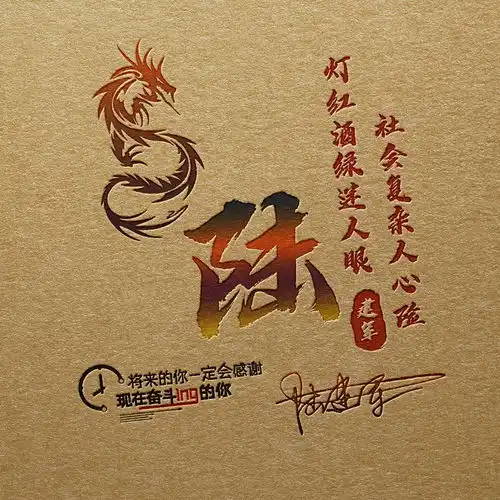 社会复杂人心险
灯红酒绿迷人眼
建军
陆
将来的你一定会感谢
现在奋斗ing的你
陆建军